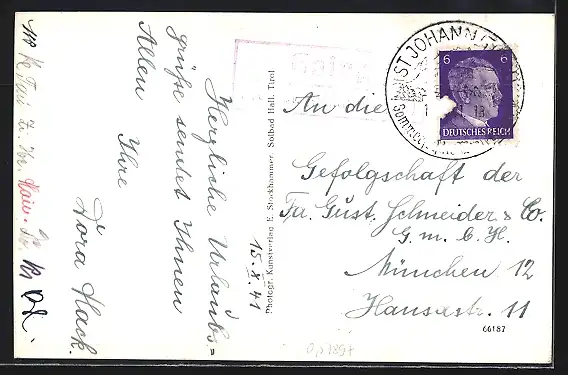 Herzliche Urlaubs=
grüße sendet Ihnen
Allen Ihre
Dora Hack.
15.X.41
Photogr. Kunstverlag E. Stockhammer, Solbad Hall, Tirol
ST JOHANN
6 6
DEUTSCHES REICH
An die
Gefolgschaft der
Fa. Gust. Schneider & Co.
G. m. b. H.
München 12
Hansastr. 11
66187